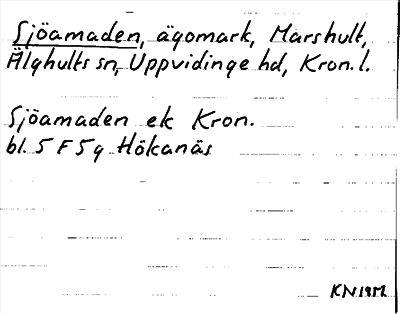 Sjöamaden, ägomark, Marshult,
Älghults sn, Uppvidinge hd, Kron. l.
Sjöamaden ek Kron.
bl. 5 F 5 g Hökanäs
KN